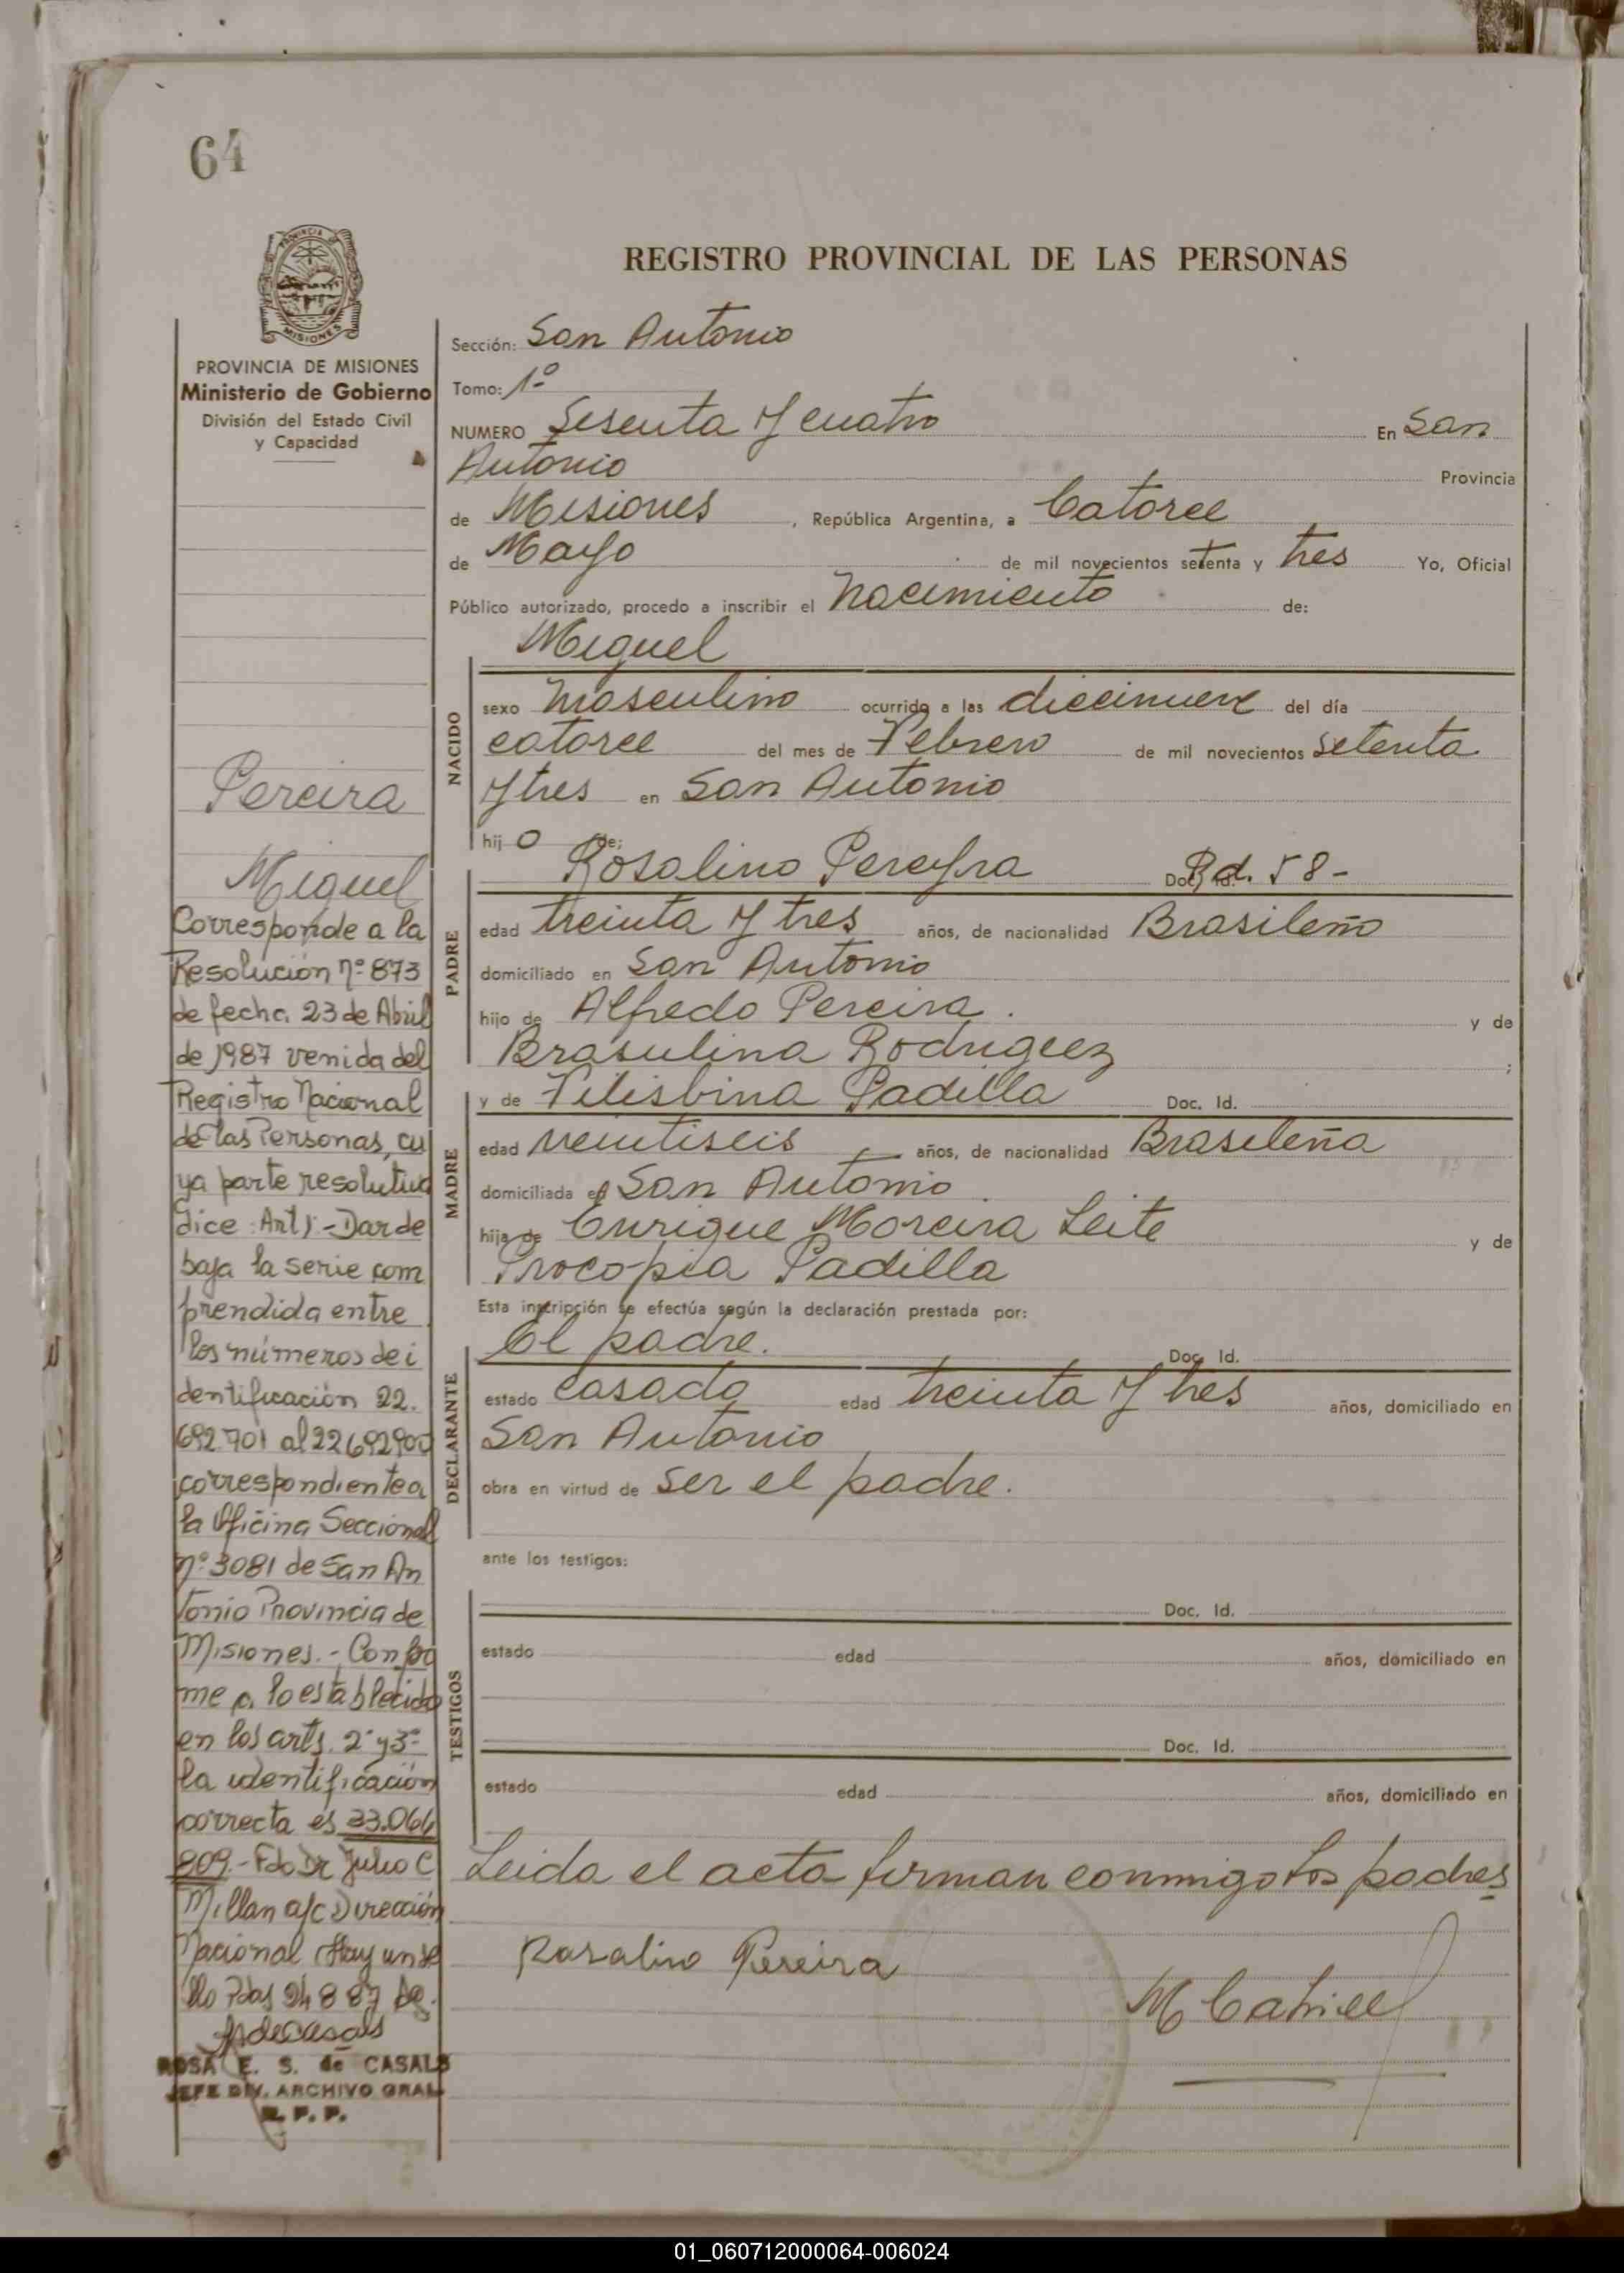 64
PROVINCIA DE MISIONES
Ministerio de Gobierno
División del Estado Civil
y Capacidad
REGISTRO PROVINCIAL DE LAS PERSONAS
Sección: San Antonio
Tomo: 1º
NUMERO Sesenta y cuatro En San
Antonio Provincia
de Misiones, República Argentina, a Catorce
de Mayo de mil novecientos setenta y tres Yo, Oficial
Público autorizado, procedo a inscribir el nacimiento de:
Miguel
NACIDO
sexo masculino ocurrido a las diecinueve del día
catorce del mes de Febrero de mil novecientos setenta
y tres en San Antonio
hijo de:
PADRE
Rosalino Pereyra Doc. Id. 58-
edad treinta y tres años, de nacionalidad Brasileño
domiciliado en San Antonio
hijo de Alfredo Pereira. y de
Brasulina Rodriguez ;
MADRE
y de Filisbina Padilla Doc. Id.
edad veintiseis años, de nacionalidad Brasileña
domiciliada en San Antonio.
hija de Enrique Moreira Leite y de
Procopia Padilla
Esta inscripción se efectúa según la declaración prestada por:
DECLARANTE
El padre. Doc. Id.
estado casado edad treinta y tres años, domiciliado en
San Antonio
obra en virtud de ser el padre.
ante los testigos:
TESTIGOS
Doc. Id.
estado edad años, domiciliado en
Doc. Id.
estado edad años, domiciliado en
Leida el acta firman conmigo los padres
Rosalino Pereira
Pereira
Miguel
Corresponde a la
Resolución nº 873
de fecha 23 de Abril
de 1987 venida del
Registro Nacional
de las Personas, cu
ya parte resolutiva
dice: Art 1:- Dar de
baja la serie com
prendida entre
los números de i
dentificación 22.
692.701 al 22692900
correspondiente a
la Oficina Seccional
nº 3081 de San An
tonio Provincia de
Misiones.- Confor
me a lo establecido
en los arts. 2º y 3º
la identificación
correcta es 23.064
809.- Fdo Dr Julio C
Millan a/c Dirección
Nacional Hay un se
llo Pdas 24 8 87
ROSA E. S. de CASALS
JEFE DIV. ARCHIVO GRAL
R. P. P.
01_060712000064-006024